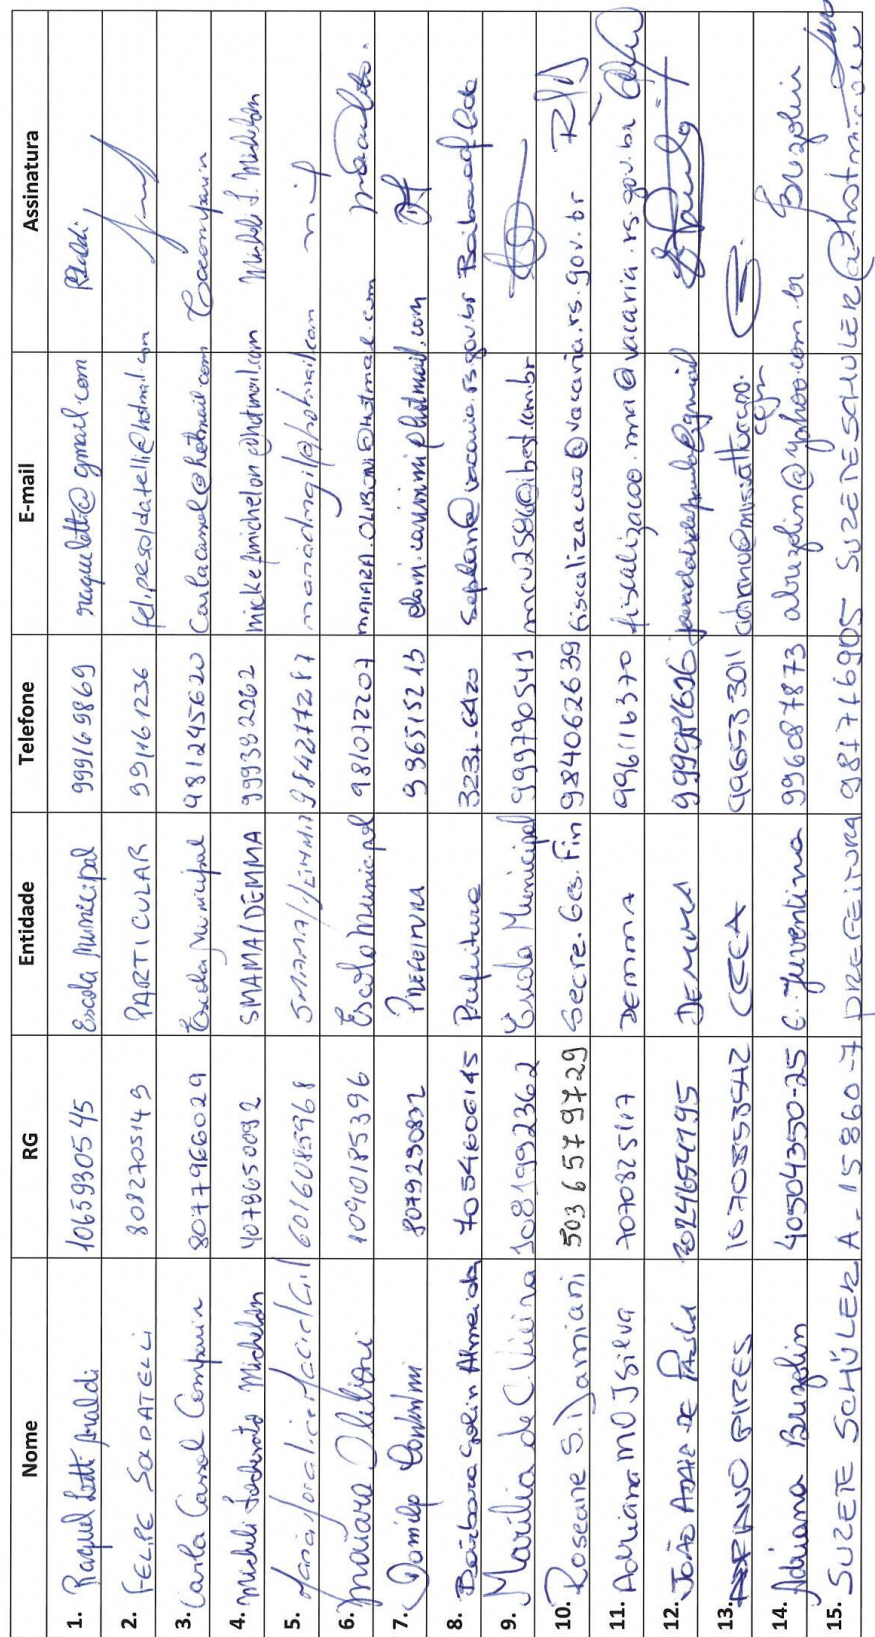 Nome RG Entidade Telefone E-mail Assinatura
1. Raquel Lotti Araldi 1065930545 Escola Municipal 999169869 raquellotti@gmail.com RAraldi
2. FELIPE SOLDATELLI 8082705149 PARTICULAR 991161236 felipesoldatelli@hotmail.com
3. Carla Casol Comparin 8077966029 Escola Municipal 981245620 Carlacasol@hotmail.com Ccomparin
4. Micheli Micheldon 4079650092 SMAMA/DEMMA 999392262 Micheli S. Micheldon
5. 6016085968 984277287
6. Maiara Olibони 1090185396 Escola Municipal 981072207 MAIARA.OLIBONI@hotmail.com
7. Danilo 8079290832 PREFEITURA 996515213
8. Bárbara Solin Almeida 7054606145 Prefeitura 3231-6420
9. Marilia de C. Vieira 1081992362 Escola Municipal 999790541 mcv2586@ibest.com.br
10. Roseane S. Damiani 5036579729 Secre. Ges. Fin 984062639 fiscalizacao@vacaria.rs.gov.br
11. Adriana MO J Silva 7070825117 DEMMA 996116370 fiscalizacao.mma@vacaria.rs.gov.br
12. JOÃO ADAIR DE PAULA DEMMA
13. PIRES 1070853542 CECA 996533011
14. Adriana Buzolin 40504350-25 E. Juventina 996087873 abuzolin@yahoo.com.br Buzolin
15. SUZETE SCHÜLER A-15860-7 PREFEITURA 981716905 SUZETESCHULER@hotmail.com